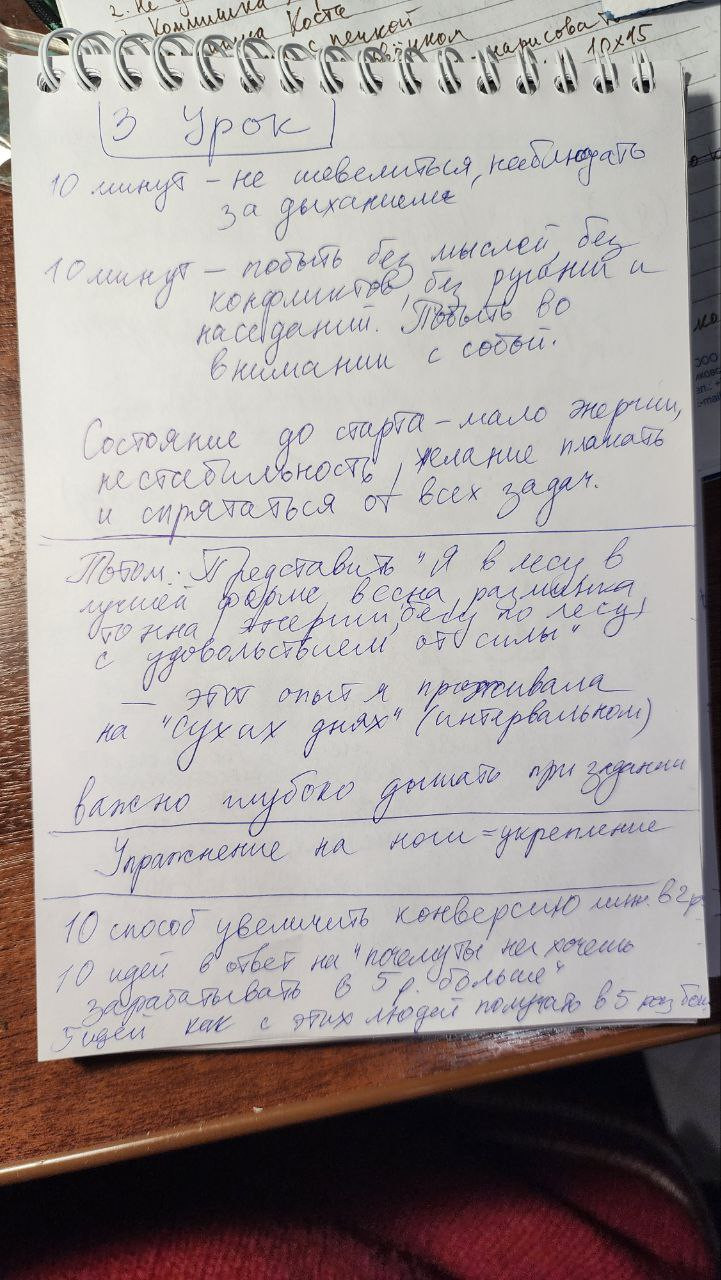 2. Не
Коста
с пенкой
нарисовать
10х15
3 Урок
10 минут – не шевелиться, наблюдать
за дыханием
10 минут – побыть без мыслей, без
конфликтов, без руганий и
наседаний. Побыть во
внимании с собой.
Состояние до старта – мало энергии,
нестабильность, желание плакать
и спрятаться от всех задач.
Потом: Представить "Я в лесу в
лучшей форме, весна, разминка
тонна энергии, бегу по лесу,
с удовольствием от силы"
— этот опыт я проживала
на "Сухих днях" (интервальном)
важно глубоко дышать при задании
Упражнение на ноги = укрепление
10 способ увеличить конверсию мин. в 2 р
10 идей в ответ на "почему ты не хочешь
зарабатывать в 5 р. больше"
5 идей как с этих людей получать в 5 раз бол
ООО